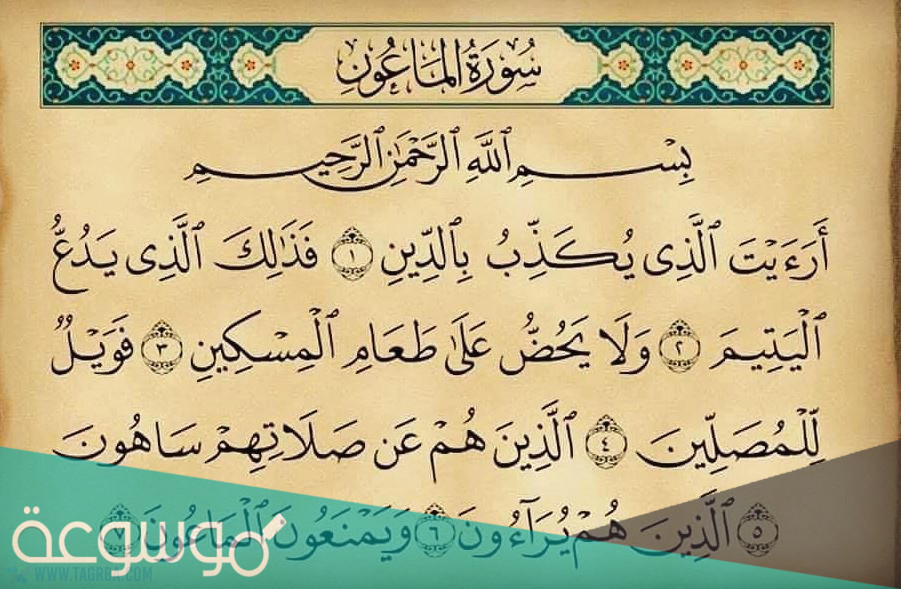 سُورَةُ المَاعُونِ
بِسْمِ ٱللَّهِ ٱلرَّحْمَٰنِ ٱلرَّحِيمِ
أَرَءَيْتَ ٱلَّذِى يُكَذِّبُ بِٱلدِّينِ ١ فَذَٰلِكَ ٱلَّذِى يَدُعُّ
ٱلْيَتِيمَ ٢ وَلَا يَحُضُّ عَلَىٰ طَعَامِ ٱلْمِسْكِينِ ٣ فَوَيْلٌ
لِّلْمُصَلِّينَ ٤ ٱلَّذِينَ هُمْ عَن صَلَاتِهِمْ سَاهُونَ
٥ ٱلَّذِينَ هُمْ يُرَآءُونَ ٦ وَيَمْنَعُونَ ٱلْمَاعُونَ ٧
موسوعة
WWW.TAGRBA.COM